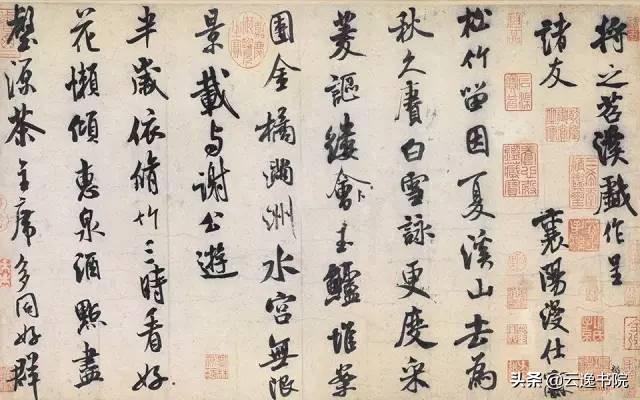 將之苕溪戲作呈
諸友
襄陽漫仕黻
松竹留因夏溪山去為
秋久賡白雪詠更度采
菱謳縷會玉鱸堆案
團金橘滿洲水宮無限
景載与謝公遊
半歲依脩竹三時看好
花懶傾惠泉酒點盡
壑源茶主席多同好群
头条 @云逸书院